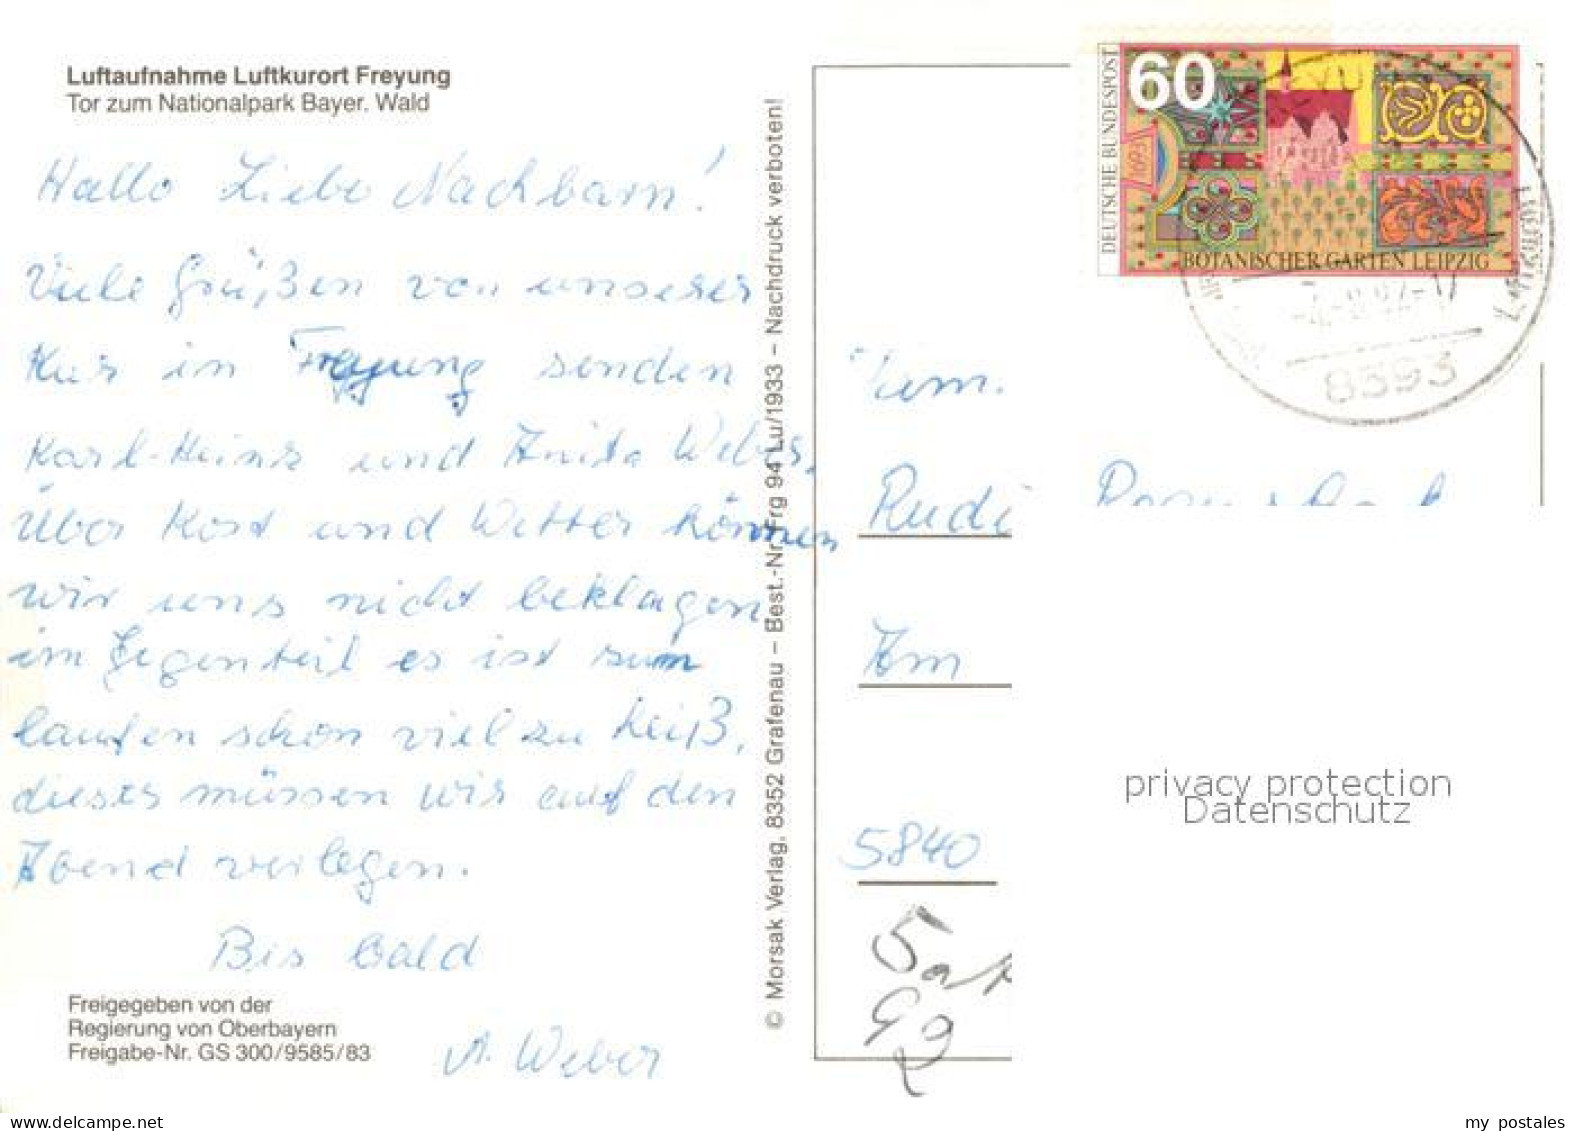 Luftaufnahme Luftkurort Freyung
Tor zum Nationalpark Bayer. Wald
Hallo Liebe Nachbarn!
Viele Grüßen von unserer
Kur in Freyung senden
Karl-Heinz und Anita Weber.
Über Kost und Wetter können
wir uns nicht beklagen
im Gegenteil es ist zum
laufen schon viel zu heiß,
dieses müssen wir auf den
Abend verlegen.
Bis bald
A. Weber
Freigegeben von der
Regierung von Oberbayern
Freigabe-Nr. GS 300/9585/83
© Morsak Verlag, 8352 Grafenau – Best.-Nr. Frg 94 Lu/1933 – Nachdruck verboten!
60
DEUTSCHE BUNDESPOST
1693
BOTANISCHER GARTEN LEIPZIG
8393
Fam.
Rudi
Am
5840
privacy protection
Datenschutz
www.delcampe.net
my_postales